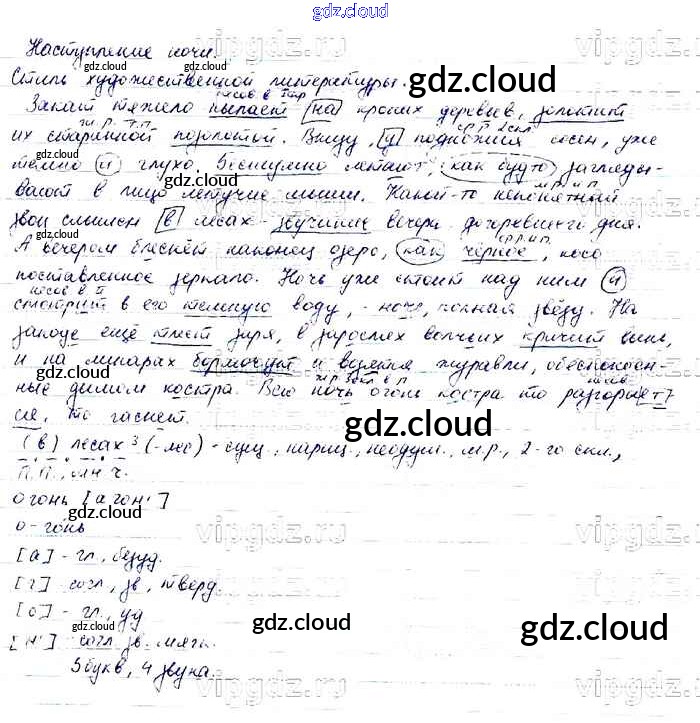 gdz.cloud
Наступление ночи.
Стиль художественной литературы.
Закат тяжело пылает на кронах деревьев, золотит
их старинной позолотой. Внизу, у подножия сосен, уже
темно и глухо. Бесшумно летают, как будто загляды-
вают в лицо летучие мыши. Какой-то непонятный
звон слышен в лесах - звучание вечера, догоревшего дня.
А вечером блеснёт наконец озеро, как чёрное, косо
поставленное зеркало. Ночь уже стоит над ним и
смотрит в его темную воду, - ночь, полная звёзд. На
западе ещё тлеет заря, в зарослях волчьих кричит выпь,
и на мшарах бормочут и возятся журавли, обеспокоен-
ные дымом костра. Всю ночь огонь костра то разгорает-
ся, то гаснет.
(в) лесах³ (-лес) - сущ., нариц., неодуш., м.р., 2-го скл.,
П.п., мн.ч.
огонь [агон']
о-гонь
[а] - гл., безуд.
[г] согл., зв., тверд.
[о] - гл., уд
[н'] согл. зв. мягк.
5букв, 4 звука.